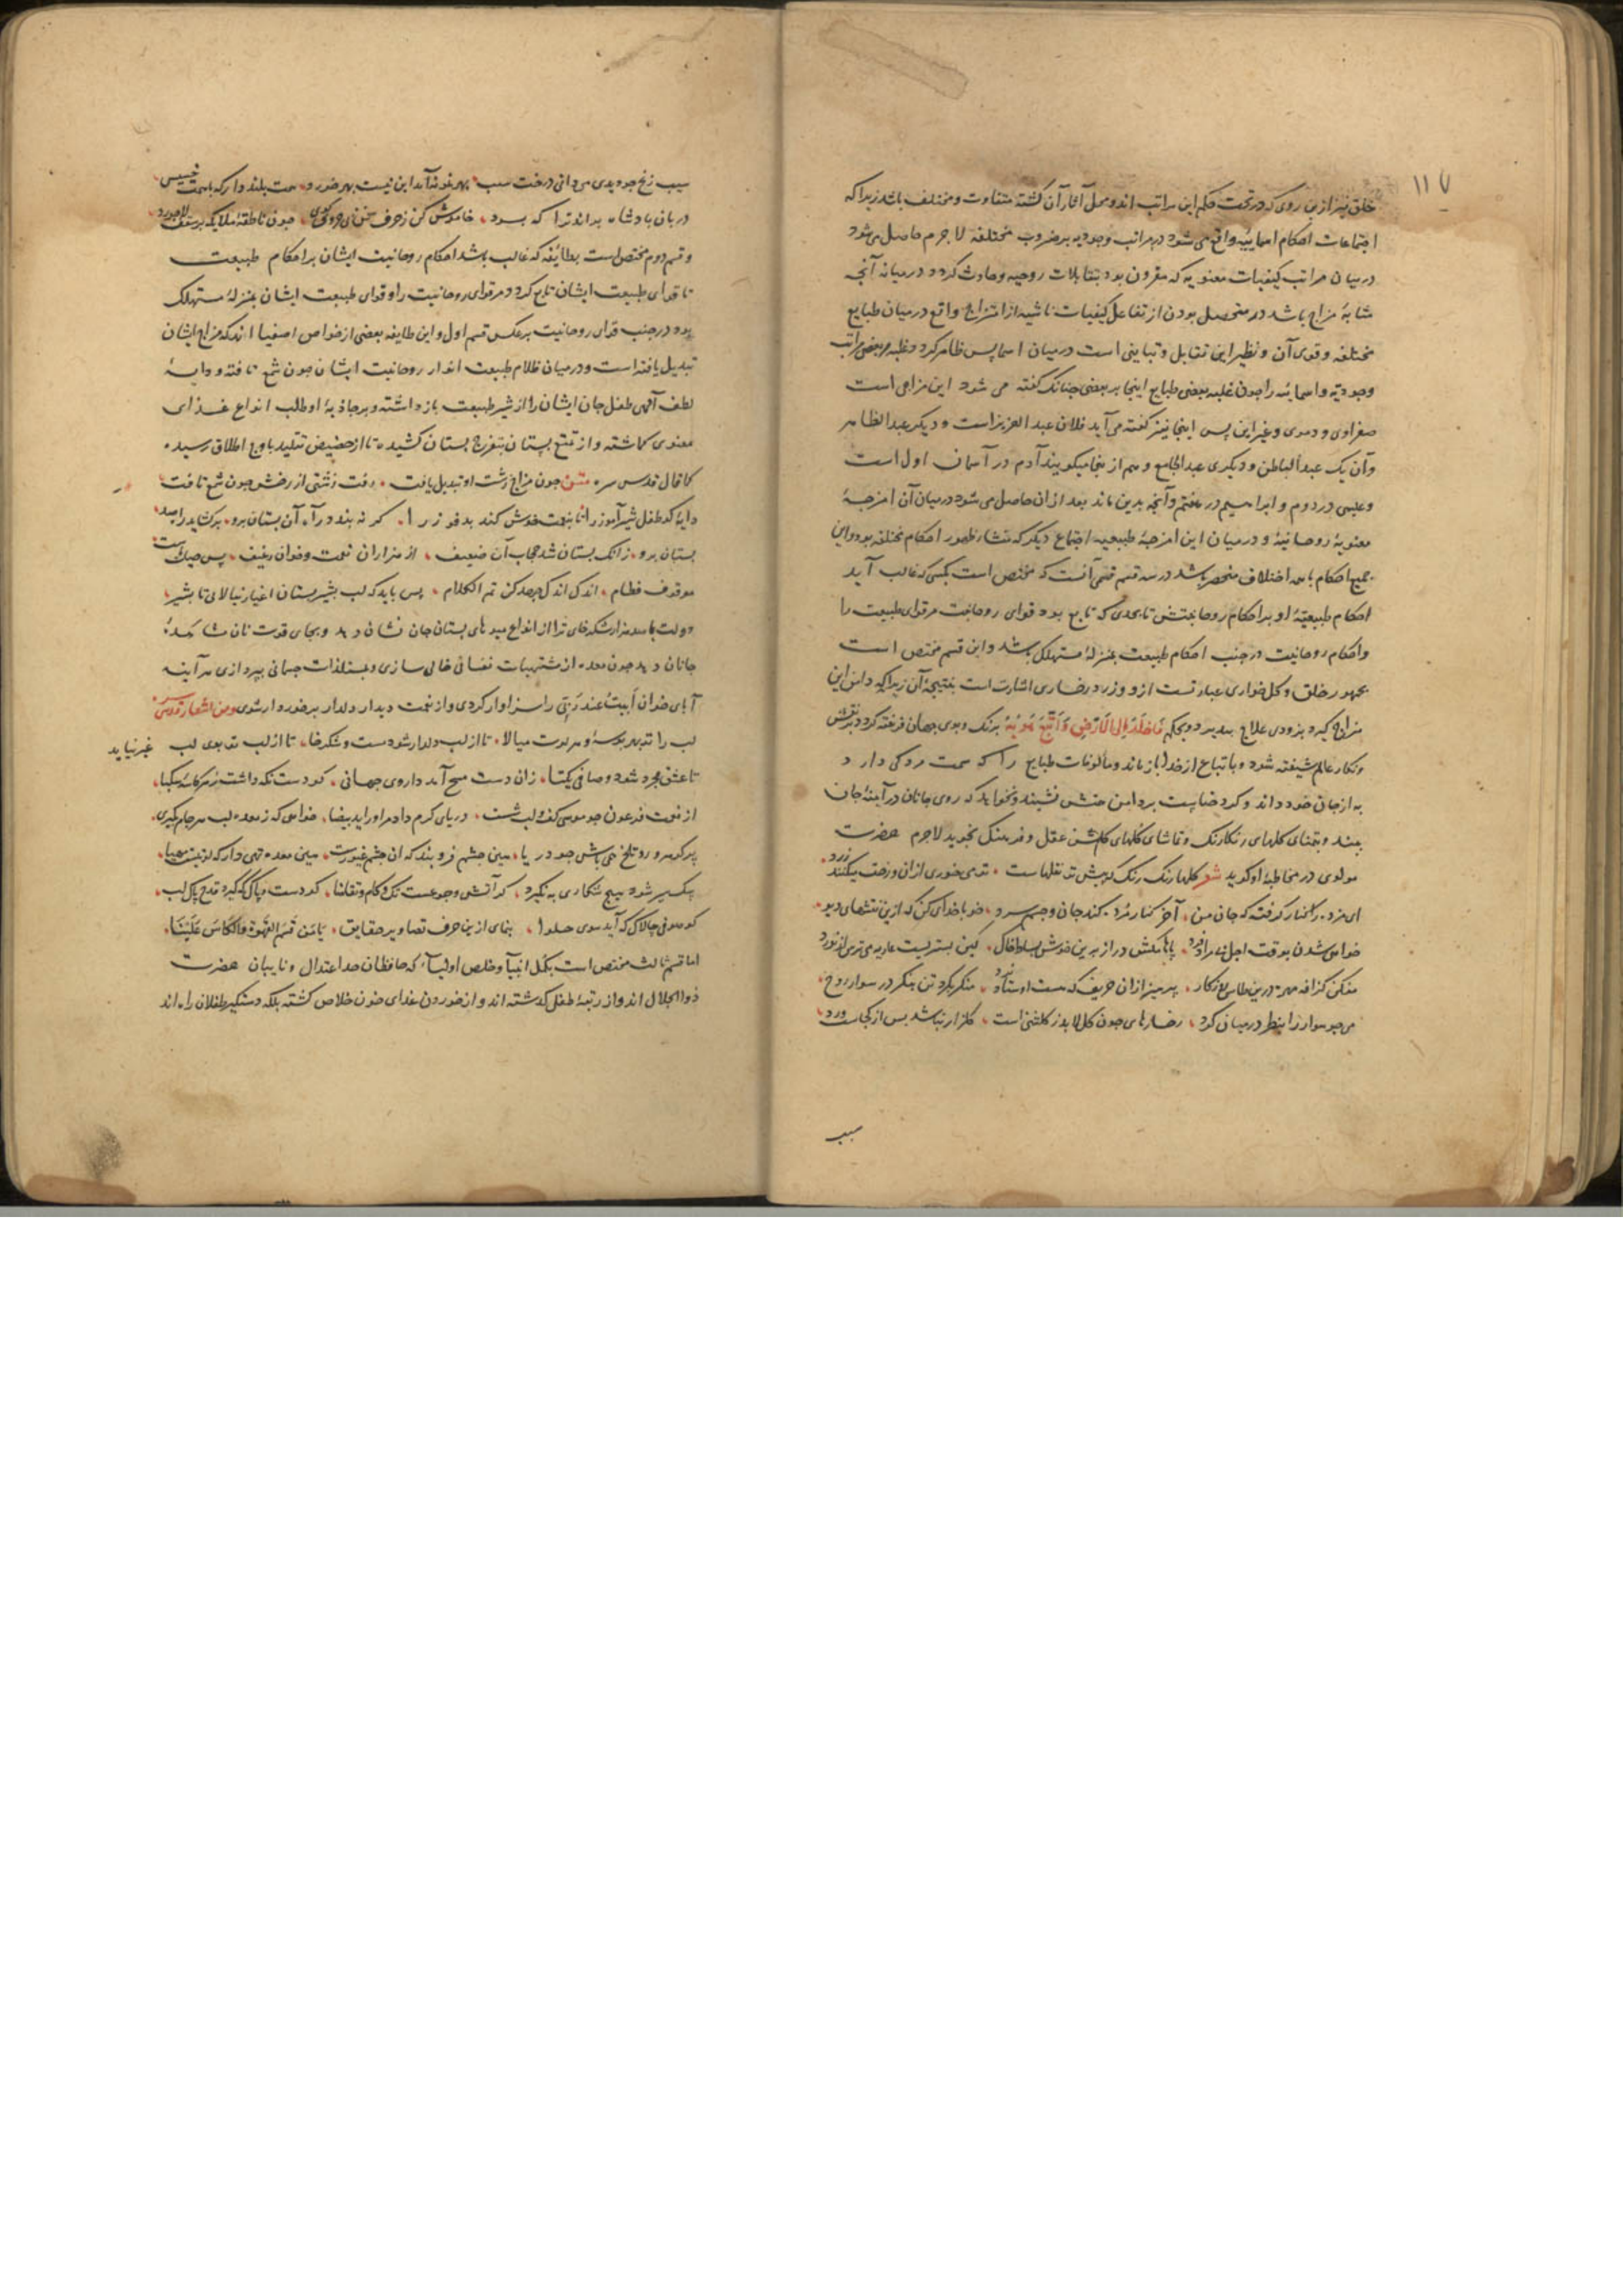 ۱۱۷
خلق نیز ازین روی که در تحت حکم این مراتب اند و محل آثار آن گشته متفاوت و مختلف باشد زیرا که
اجتماعات احکام اسمائیه واقع می شود در مراتب وجودیه بر ضروب مختلفه لاجرم حاصل می شود
درمیان مراتب کیفیات معنویه که مقرون بود بتقابلات روحیه و حادث گردد درمیانه آنچه
مشابهٔ مزاج باشد در متحصل بودن از تفاعل کیفیات ناشیه از امتزاج واقع درمیان طبایع
مختلفه و قوی آن و نظیر این تقابل و تباینی است درمیان اسما پس ظاهر گردد غلبه بعضی مراتب
وجودیه و اسمائیه را چون غلبه بعضی طبایع اینجا بر بعضی چنانک گفته می شود این مزاجی است
صفراوی و دموی و غیر این پس اینجا نیز گفته می آید فلان عبد العزیز است و دیگر عبد الظاهر
و آن یک عبد الباطن و دیگری عبد الجامع و هم از ینجا میگویند آدم در آسمان اول است
و عیسی در دوم و ابراهیم در هفتم و آنچه بدین ماند بعد ازان حاصل می شود درمیان آن امزجهٔ
معنویهٔ روحانیهٔ و درمیان این امزجهٔ طبیعیه اجتماع دیگر که منشأ ظهور احکام مختلفه بود و این
جمیع احکام با همه اختلاف منحصر باشد در سه قسم قسمی آنست که مختص است بکسی که غالب آید
احکام طبیعیهٔ او بر احکام روحانیتش تا بحدی که تابع بود قوای روحانیت مر قوای طبیعت را
و احکام روحانیت در جنب احکام طبیعت بمنزلهٔ مستهلک باشد و این قسم مختص است
بجمهور خلق و گل خواری عبارتست ازو و زرد رخساری اشارت است بنتیجهٔ آن زیرا که دامن این
مزاج گیرد بزودی علاج بپذیرد و بحکم فاخلد الی الارض و اتبع هویه برنگ و بوی جهان فریفته گردد بنقش
و نگار عالم شیفته شود و باتباع از خدا باز ماند و مألوفات طبایع را که سمت مردگی دارد
به از جان خود داند و گرد خباثت بر دامن همتش نشیند و نخواهد که روی جانان در آینهٔ جان
بیند و بتمنای گلهای رنگارنگ و تماشای گلهای گلشن عقل و فرهنگ نجوید لاجرم حضرت
مولوی در مخاطبهٔ او گوید شعر گلها رنگ رنگ که پیش تو نقلهاست تو می خوری ازان و رخت میکنند زرد
ای مرده را کنار گرفته که جان من آخر کنار مرده کند جان و جسم سرد خو با خدای کن که ازین نقشهای دیو
خواهی شدن بوقت اجل بی مراد فرد پاها مکش دراز برین خوش بساط خاک کین بستریست عاریه می ترس از نورد
مفکن گزافه مهره درین طاس روزگار پرهیز ازان حریف که هست اوستاد نرد منگر بگرد تن بنگر در سوار روح
می جو سوار را بنظر درمیان گرد رخسارهای چون گل لابد ز گلشنی است گلزار اگر نباشد پس از کجاست ورد
سیب
سیب زنخ چو دیدی می دانی درخت سیب بهر نمونه آمد این نیست بهر خورد همت بلند دار که با همت خسیس
دربان پادشاه براند ترا که برد خاموش کن ز حرف سخن بی حروف گوی چون ناطقهٔ ملایکه بر سقف لاجورد
و قسم دوم مختص است بطائفه که غالب باشد احکام روحانیت ایشان بر احکام طبیعت
تا قوای طبیعت ایشان تابع گردد مر قوای روحانیت را و قوای طبیعت ایشان بمنزلهٔ مستهلک
بود در جنب قوای روحانیت برعکس قسم اول و این طایفه بعضی از خواص اصفیا اند که مزاج ایشان
تبدیل یافته است و درمیان ظلام طبیعت انوار روحانیت ایشان چون شمع تافته و دایهٔ
لطف آلهی طفل جان ایشان را از شیر طبیعت باز داشته و بر جاذبهٔ او طلب انواع غذای
معنوی گماشته و از تمتع پستان بتفرج بستان کشیده تا از حضیض تقلید باوج اطلاق رسیده
کما قال قدس سره مثنوی چون مزاج زشت او تبدیل یافت رفت زشتی از رخش چون شمع تافت
دایهٔ کو طفل شیر آموز را تا بنعمت خوش کند بدفوز را گر نه بندد راه آن پستان برو برگشاید راه صد
بستان برو زانک پستان شد حجاب آن ضعیف از هزاران نعمت و خوان و رغیف پس حیات ماست
موقوف فطام اندک اندک جهد کن تم الکلام پس باید که لب بشیر پستان اغیار نیالائی تا بشیر
دولت با صد هزار شکرخای ترا از انواع میوهای بستان جان نشان دهد و بجای قوت نان مشاهدهٔ
جانان دهد چون معده از مشتهیات نفسانی خالی سازی و بمستلذات جسمانی نپردازی هر آینه
آبای خوان ابیت عند ربی را سزاوار گردی و از نعمت دیدار دلدار برخوردار شوی و من اشعار قدس سره
لب را تو بهر بوسه و هر لوت میالا تا از لب دلدار شود مست و شکرخا تا از لب تو بوی لب غیر نیاید
تا عشق مجرد شود و صافی و یکتا زان دست مسیح آمد داروی جهانی کو دست نگه داشت ز هر کاسهٔ سکبا
از نعمت فرعون چو موسی کف و لب شست دریای کرم داد مر او را ید بیضا خواهی که ز معده و لب هر خام گریزی
پر گوهر و رو تلخ همی باش چو دریا هین چشم فرو بند که آن چشم غیورست هین معده تهی دار که لوتیست مهیا
سگ سیر شود هیچ شکاری بنگیرد کز آتش جوعست تک و گام و تقاضا کو دست و لب پاک که گیرد قدح پاک
کو صوفی چالاک که آید سوی حلوا بنمای ازین حرف تصاویر حقایق یا من قسم القهوة و الکاس علینا
اما قسم ثالث مختص است بکمل انبیا و خلص اولیاء که حافظان حد اعتدال و نایبان حضرت
ذوالجلال اند و از رتبهٔ طفل گذشته اند و از خوردن غذای خون خلاص گشته بلکه دستگیر طفلان راه اند